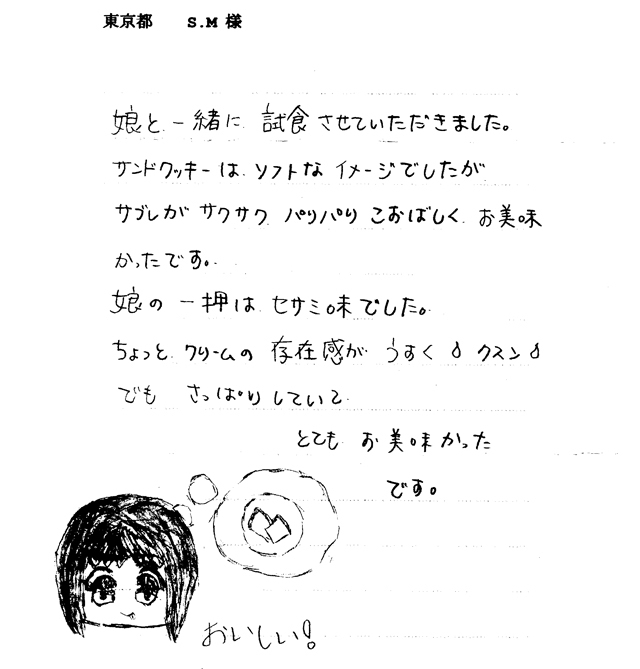 東京都　　S.M 様
娘と一緒に 試食させていただきました。
サンドクッキーは ソフトな イメージでしたが
サブレが サクサク パリパリ こおばしく お美味
かったです。
娘の 一押は セサミ味でした。
ちょっと クリームの 存在感が うすく クスン
でも さっぱりしていて
とても お美味かった
です。
おいしい!